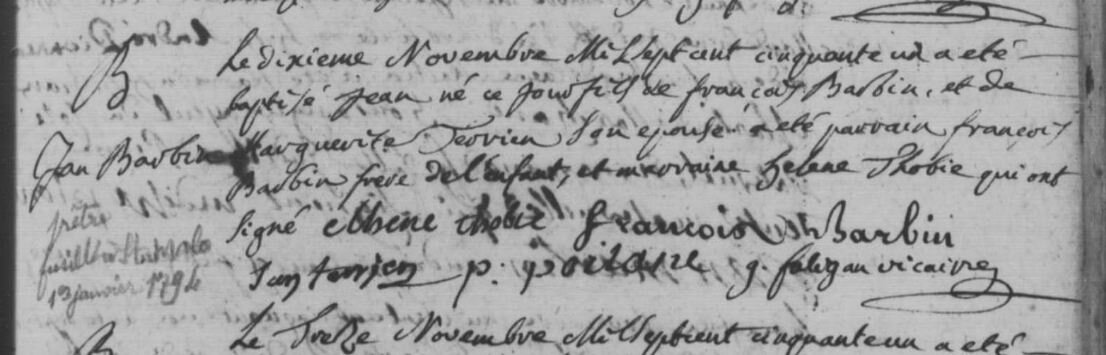 B
Le dixieme Novembre Mil Sept cent cinquante un a eté
baptisé Jean né ce jour fils de françois Barbin, et de
Jan Barbin
Marguerite Terrien son epouse a eté parrain françois
Barbin frere de l'enfant, et marraine helene Thobie qui ont
signé ellene thobie francois Barbin
Jan terrien p. g. faligan vicaire
prêtre
fusillé
19 janvier 1794
Le Treize Novembre Mil Sept cent cinquante un a eté